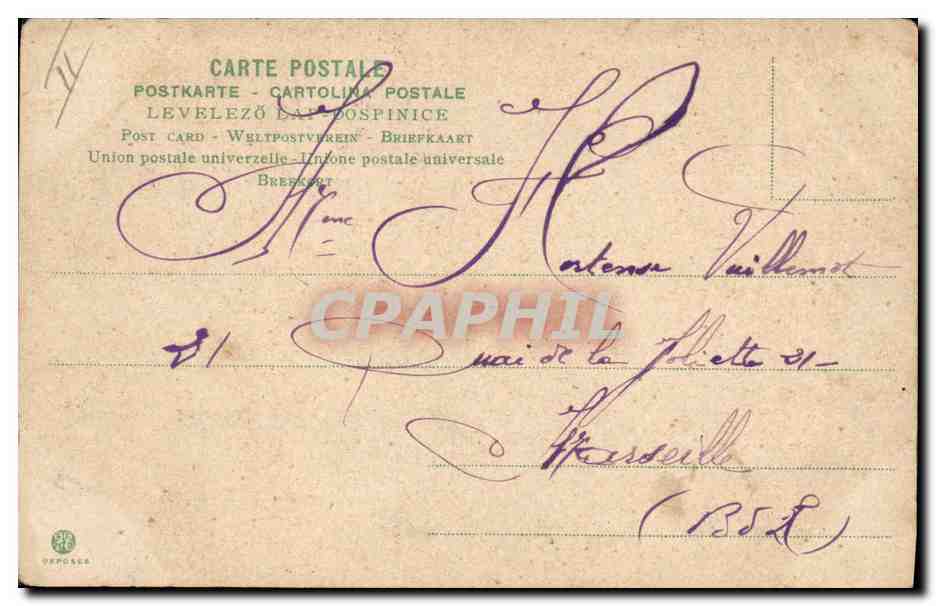 CARTE POSTALE
POSTKARTE - CARTOLINA POSTALE
LEVELEZŐ LAP - DOSPINICE
POST CARD - WELTPOSTVEREIN - BRIEFKAART
Union postale univerzelle - Unione postale universale
BREFKORT
Mme Hortense Vuillemot
21 Quai de la Joliette 21-
Marseille
(BdR)
CPAPHIL
DEPOSEE